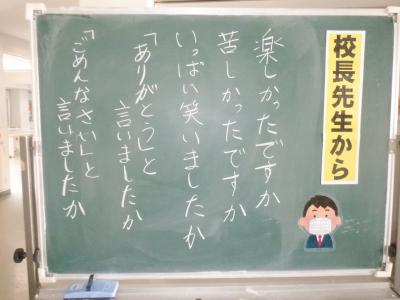 校長先生から
楽しかったですか
苦しかったですか
いっぱい笑いましたか
「ありがとう」と
言いましたか
「ごめんなさい」と
言いましたか